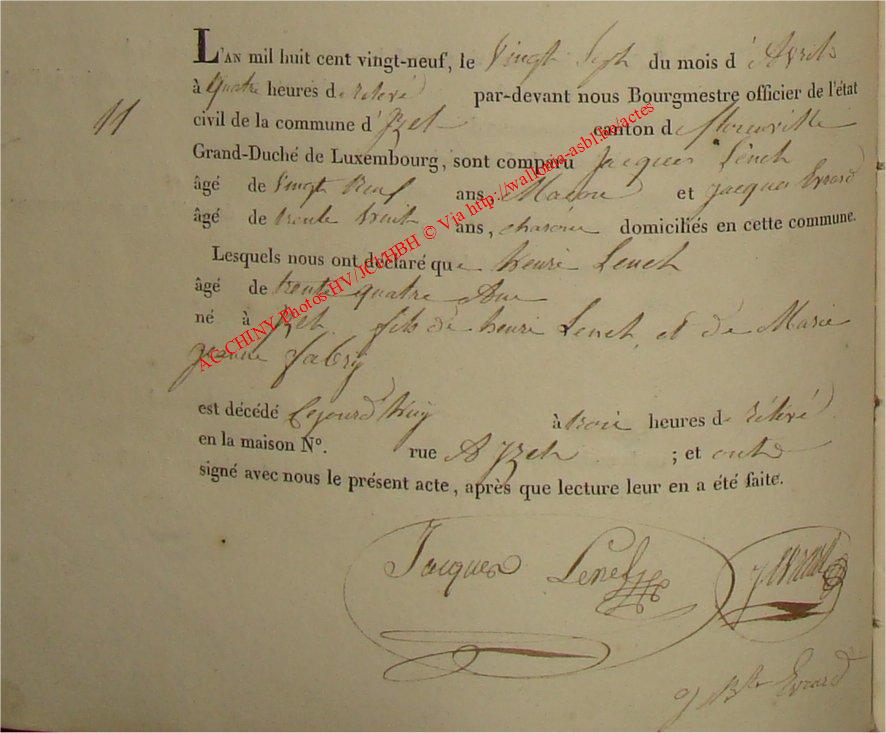 L'AN mil huit cent vingt-neuf, le Vingt Sept du mois d'Avril
à quatre heures de rélévé par-devant nous Bourgmestre officier de l'état
11
civil de la commune d'Izel canton de
Grand-Duché de Luxembourg, sont comparu Jacques Lenel
âgé de Vingt neuf ans, Macon et Jacques Evrard
âgé de trente huit ans, domiciliés en cette commune.
Lesquels nous ont déclaré que henri Lenel
âgé de trente quatre Ans
né à Izel fils de henri Lenel et de Marie
jeanne fabry
est décédé Cejourd'huy à trois heures de rélévé
en la maison N°. rue A Izel ; et ont
signé avec nous le présent acte, après que lecture leur en a été faite.
Jacques Lenel J Evrard
J Bte Evrard
AC-CHINY Photos HV/JCVHBH © Via http://wallonia-asbl.be/actes